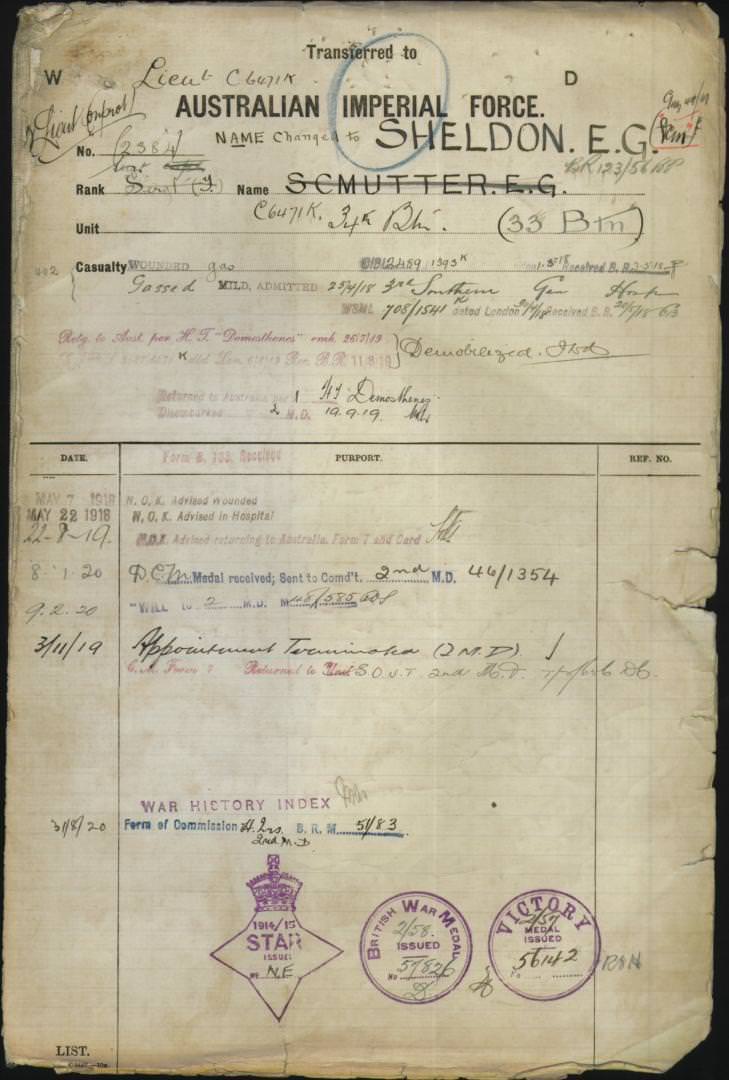 Transferred to
W Lieut C6471K D
AUSTRALIAN IMPERIAL FORCE.
NAME Changed to SHELDON. E.G.
No. (2384)
BR 123/56
Rank Name SCMUTTER. E.G.
C6471K. 34th Btn. (33 Btn)
Unit
Casualty WOUNDED gas 1393K Received B. R. 3-5-18
Gassed MILD, ADMITTED 25/4/18 3rd Southern Gen Hosp
708/1541 K dated London Received B. R.
Retg. to Aust. per H.T. "Demosthenes" emb. 25/7/19
Rec. B.R. 11/8/19 Demobilized.
Returned to Australia per HT Demosthenes
Disembarked 2 M.D. 19.9.19.
DATE. PURPORT. REF. NO.
Form B. 103. Received
MAY 7 1918 N. O. K. Advised Wounded
MAY 22 1918 N. O. K. Advised in Hospital
22-8-19. N.O.K. Advised returning to Australia. Form T and Card
8 1 20 DCM Medal received; Sent to Comd't. 2nd M.D. 46/1354
9.2.20 "WILL to 2 M.D. M 48/585
3/11/19 Appointment Terminated (2 M.D).
Returned to S.O.I.T. 2nd M.D.
WAR HISTORY INDEX
31/8/20 Form of Commission H. Qrs. B. R. M. 51/83
2nd M.D
1914/15
STAR
ISSUE
No N.E
BRITISH WAR MEDAL
2/58.
ISSUED
No 57826
VICTORY
2/57
MEDAL
ISSUED
No 56142
LIST.